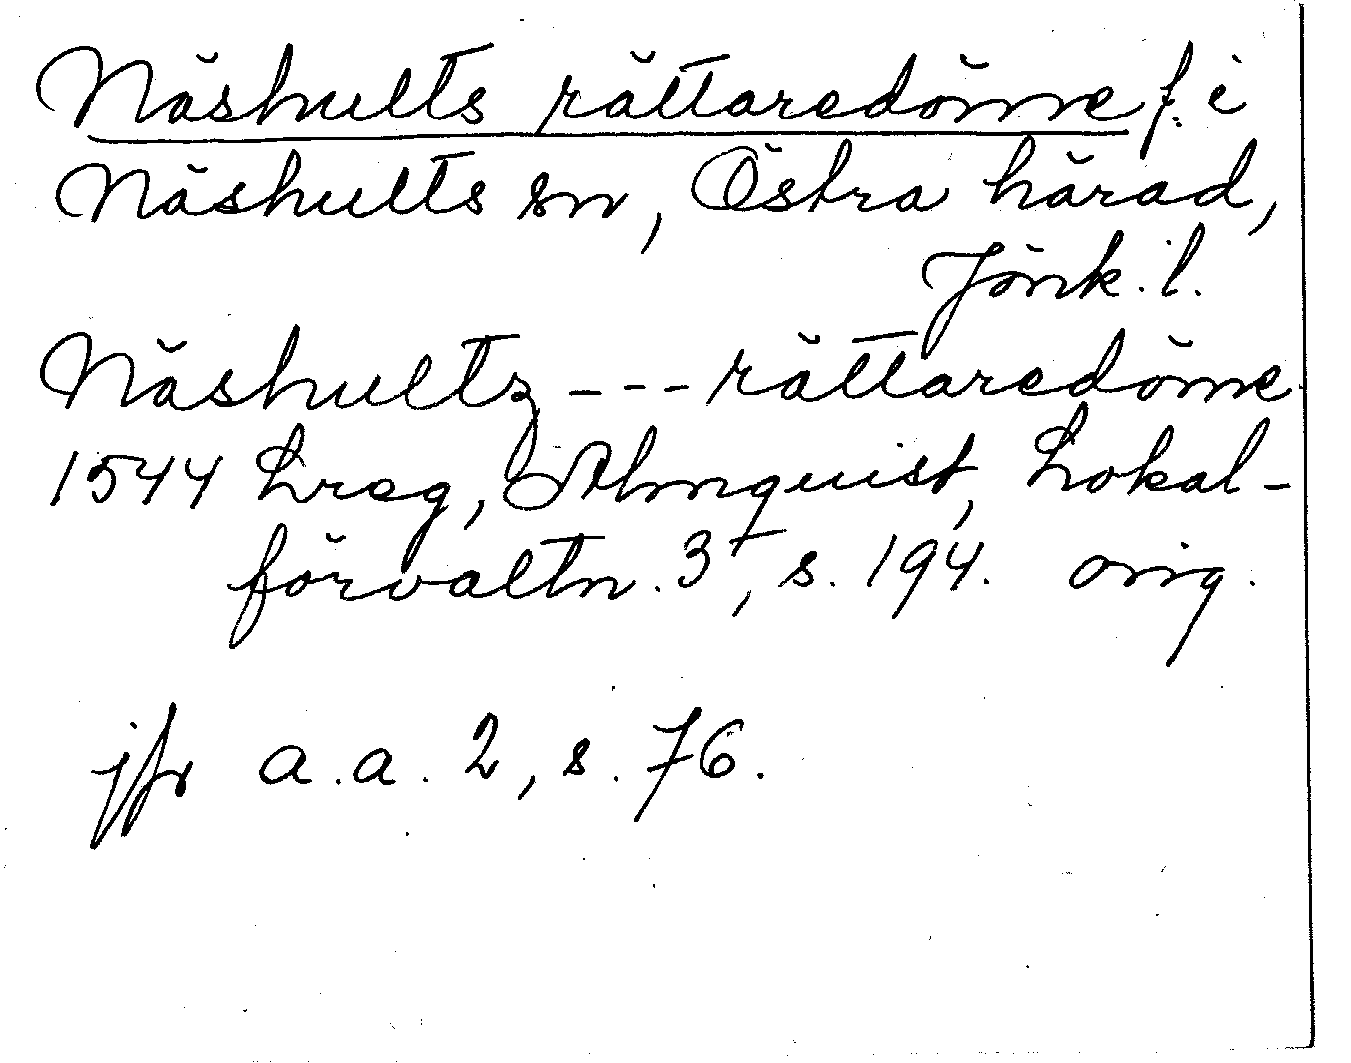 Näshults rättaredöme f. i
Näshults sn, Östra härad,
Jönk. l.
Näshultz - - - rättaredöme
1544 Lreg, Almquist, Lokal-
förvaltn. 3, s. 194. orig.
jfr a.a. 2, s. 76.